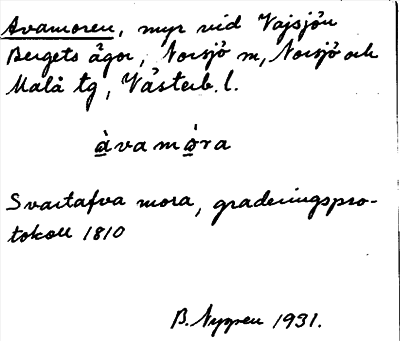 Avamoren, myr vid Vajsjön
Bergets ägor, Norsjö sn, Norsjö och
Malå tg, Västerb. l.
àvamǫ́ra
Svartafva mora, graderingspro-
tokoll 1810
B. Nygren 1931.